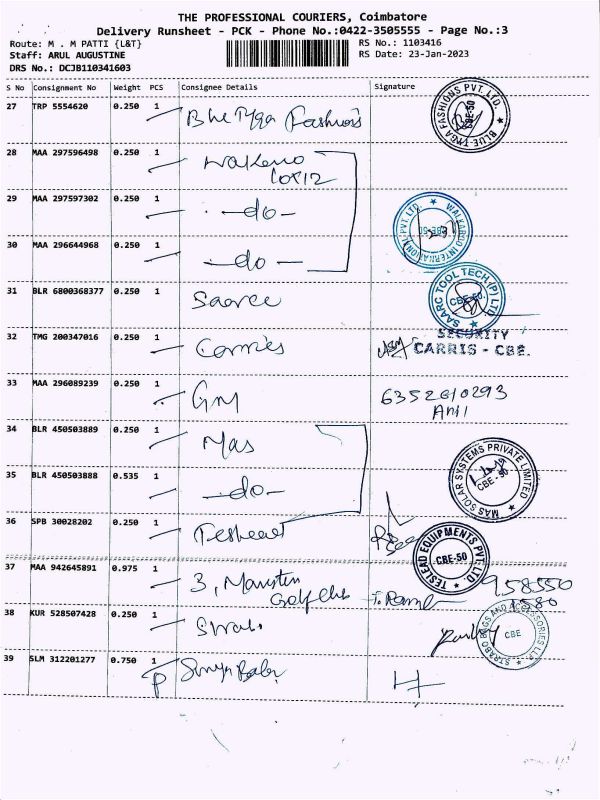 THE PROFESSIONAL COURIERS, Coimbatore
Delivery Runsheet - PCK - Phone No.:0422-3505555 - Page No.:3
Route: M . M PATTI {L&T}
RS No.: 1103416
Staff: ARUL AUGUSTINE
RS Date: 23-Jan-2023
DRS No.: DCJB110341603
S No Consignment No Weight PCS Consignee Details Signature
27 TRP 5554620 0.250 1 Blue Tyga Fashions
BLUE TYGA FASHIONS PVT. LTD. CBE-50
28 MAA 297596498 0.250 1
29 MAA 297597302 0.250 1 -do-
30 MAA 296644968 0.250 1 -do-
WALKAROO INTERNATIONAL PVT. LTD. CBE-50
31 BLR 6800368377 0.250 1 Saarc
SAARC TOOL TECH (P) LTD CBE-50.
32 TMG 200347016 0.250 1 Carries
SECURITY
CARRIS - CBE.
33 MAA 296089239 0.250 1 6352610293
34 BLR 450503889 0.250 1 Mas
35 BLR 450503888 0.535 1 -do-
MAS SOLAR SYSTEMS PRIVATE LIMITED CBE - 50
36 SPB 30028202 0.250 1
TESLEAD EQUIPMENTS PVT. LTD. CBE-50
37 MAA 942645891 0.975 1 3,
Golf club
958550
38 KUR 528507428 0.250 1
STRABO BAGS AND ACCESSORIES LLP CBE
39 SLM 312201277 0.750 1 Surya Babu
P